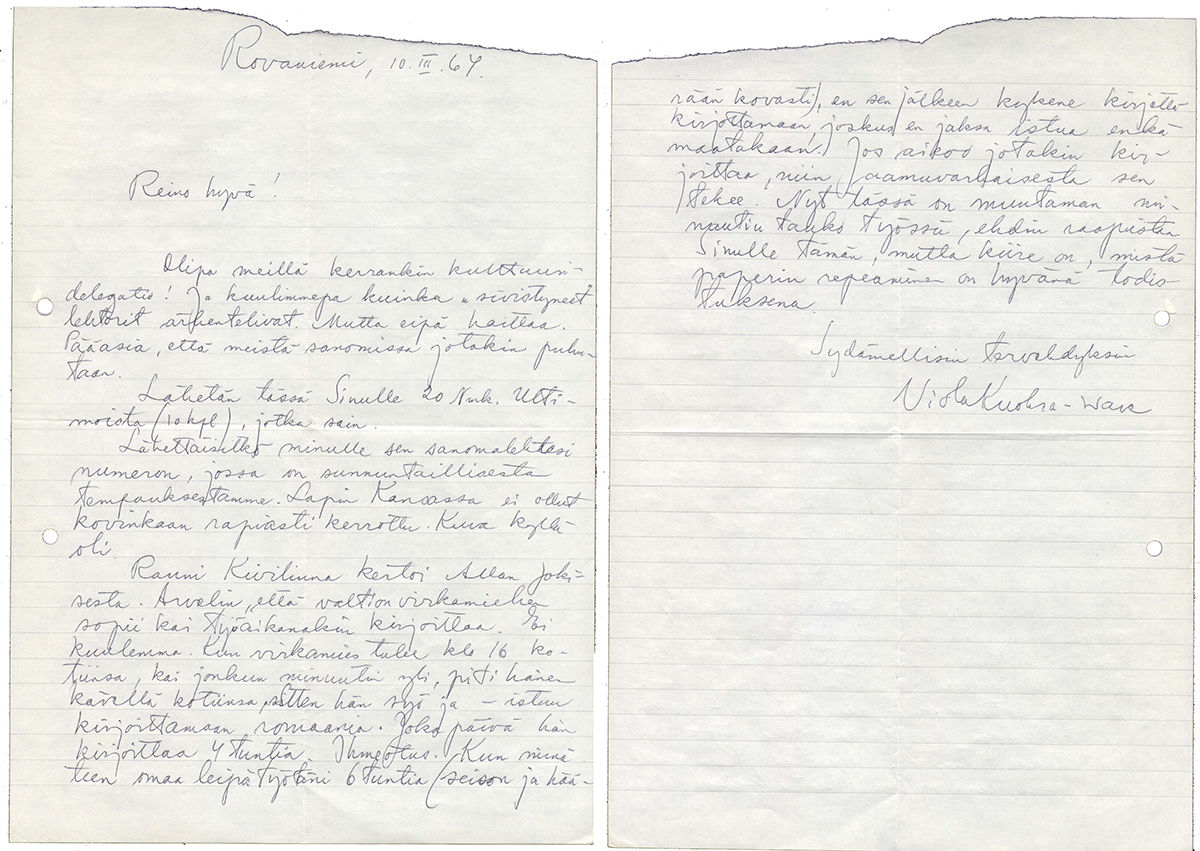 Rovaniemi, 10.III.67.
Reino hyvä!
Olipa meillä kerrankin kulttuuri-
delegatio! Ja kuulimmepa kuinka „sivistyneet"
lehtorit ärhentelivät. Mutta eipä haittaa.
Pääasia, että meistä sanomissa jotakin puhu-
taan.
Lähetän tässä Sinulle 20 Nmk. Ulti-
moista (10 kpl), jotka sain.
Lähettäisitkö minulle sen sanomalehtesi
numeron, jossa on sunnuntaillisesta
tempauksestamme. Lapin Kansassa ei ollut
kovinkaan rapiasti kerrottu. Kuva kyllä
oli.
Rauni Kivilinna kertoi Allan Joki-
sesta. Arvelin, että valtion virkamiehen
sopii kai työaikanakin kirjoittaa. Ei
kuulemma. Kun virkamies tulee klo 16 ko-
tiinsa, kai jonkun minuutin yli, piti hänen
kävellä kotiinsa, sitten hän syö ja – istuu
kirjoittamaan romaania. Joka päivä hän
kirjoittaa 4 tuntia. Ihmeotus. Kun minä
teen omaa leipätyötäni 6 tuntia (seison ja hää-
rään kovasti), en sen jälkeen kykene kirjettä
kirjottamaan, joskus en jaksa istua enkä
maatakaan.) Jos aikoo jotakin kir-
joittaa, niin aamuvarhaisesta sen
tekee. Nyt tässä on muutaman mi-
nuutin tauko työssä, ehdin raapustaa
Sinulle tämän, mutta kiire on, mistä
paperin repeäminen on hyvänä todis-
tuksena.
Sydämellisin tervehdyksin
Viola Kuoksa-